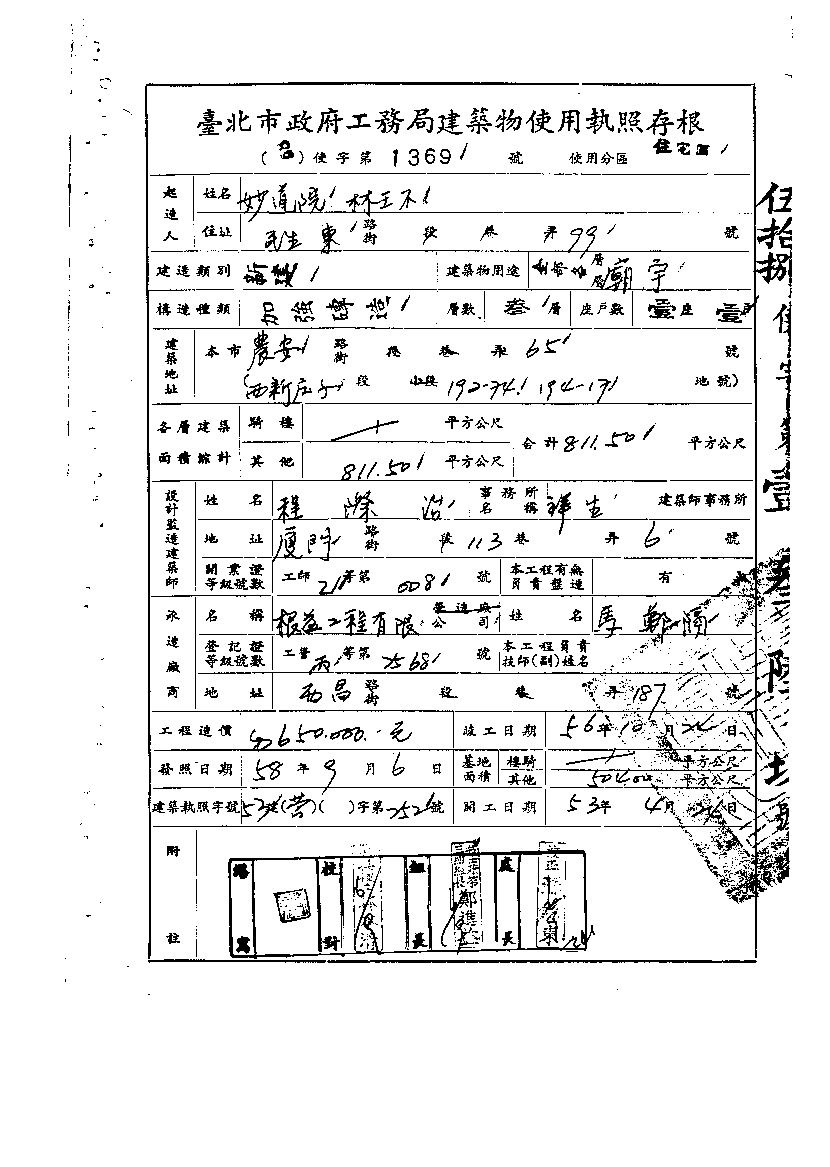 臺北市政府工務局建築物使用執照存根
( ) 使字第 1369 號 使用分區 住宅區
起造人 姓名 妙道院 林王不
住址 民生東 路街 段 巷 弄 99 號
建造類別 新建 建築物用途 層層 廟宇
構造種類 加強磚造 層數 叁層 座戶數 壹座 壹
建築地址 本市 農安 路街 段 巷 弄 65 號
(西新庄子 段 小段 192-74 194-17 地號)
各層建築面積綜計 騎樓 平方公尺 合計 811.50 平方公尺
其他 811.50 平方公尺
設計監造建築師 姓名 程 際 浩 事務所名稱 祥生 建築師事務所
地址 廈門 路街 段 113 巷 弄 6 號
開業證等級號數 工師 等第 0081 號 本工程有無負責監造 有
承造廠商 名稱 根益工程有限 營造廠公司 姓名 馬
登記證等級號數 工營 丙 等第 2568 號 本工程負責技師(副)姓名
地址 西昌 路街 段 巷 弄 187 號
工程造價 650,000.-元 竣工日期 56年10月24日
發照日期 58年9月6日 基地面積 樓騎 平方公尺
其他 504.00 平方公尺
建築執照字號 53 (營)( )字第 2521 號 開工日期 53年4月24日
附註
繕寫 校對 組長 處長
伍拾捌 使字第壹叁陸 號